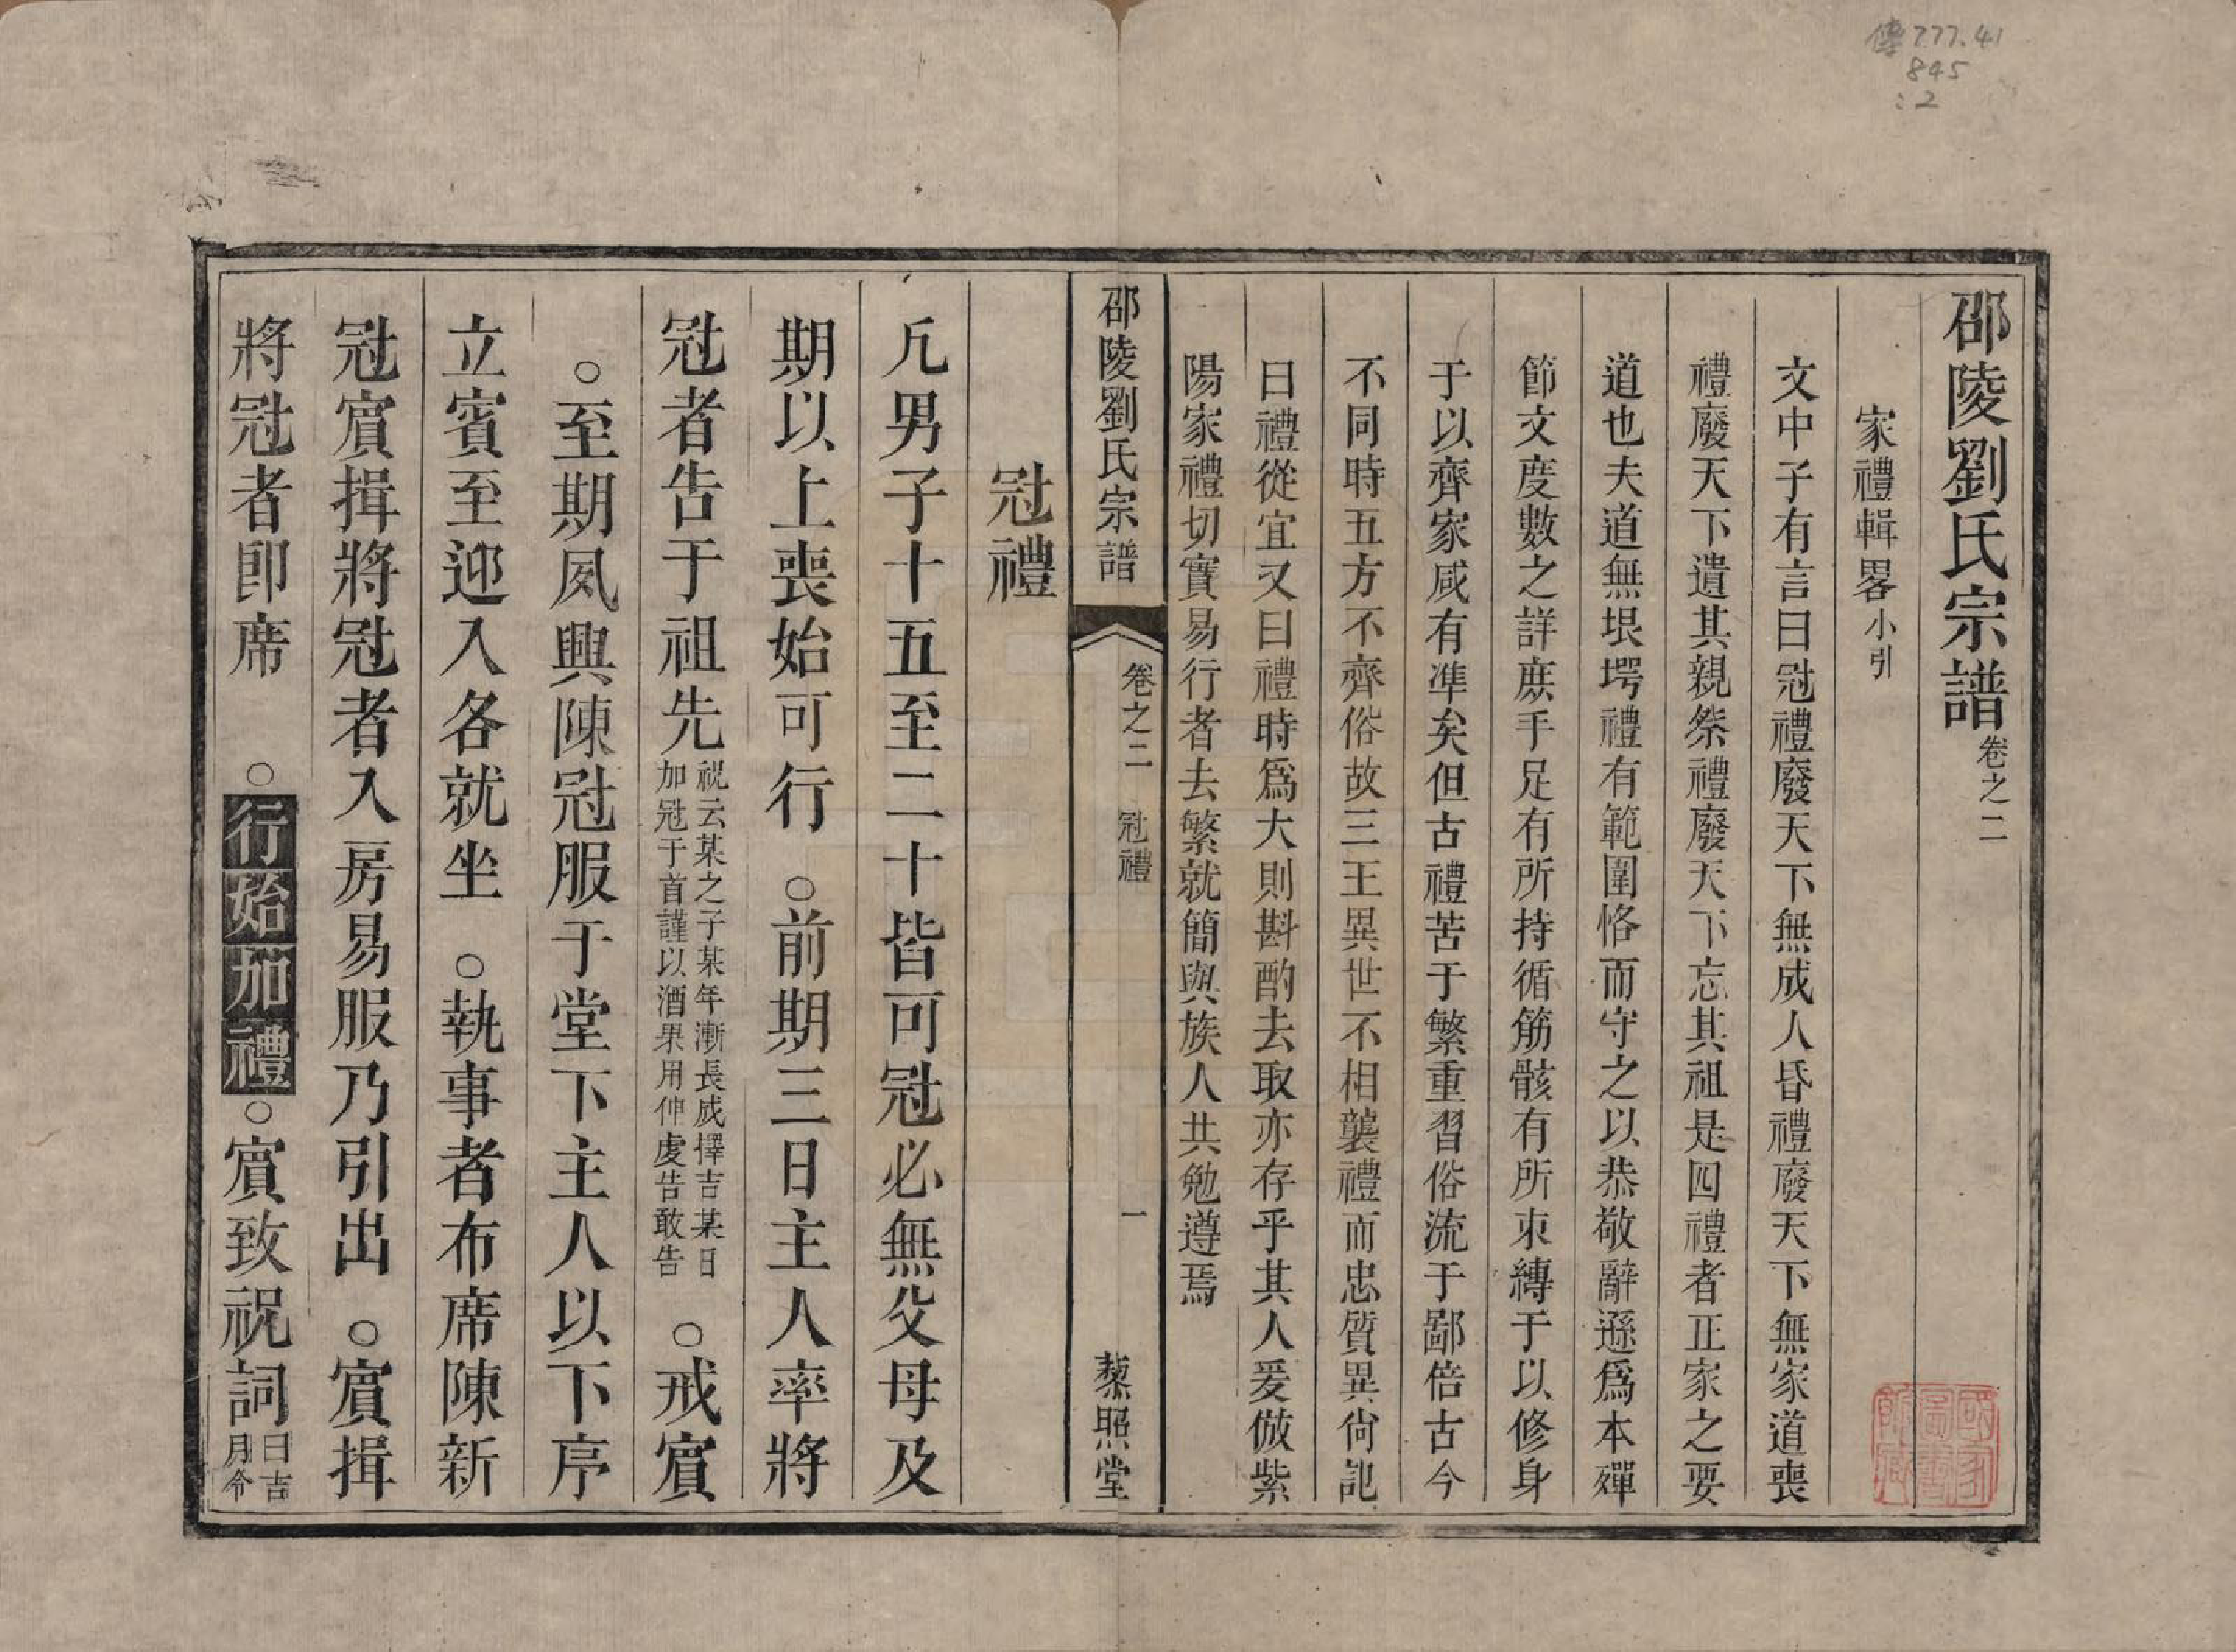 傳777.41
845
:2
邵陵劉氏宗譜卷之二
家禮輯畧小引
文中子有言曰冠禮廢天下無成人昏禮廢天下無家道喪
禮廢天下遺其親祭禮廢天下忘其祖是四禮者正家之要
道也夫道無垠堮禮有範圍恪而守之以恭敬辭遜爲本殫
節文度數之詳庶手足有所持循筋骸有所束縛于以修身
于以齊家咸有準矣但古禮苦于繁重習俗流于鄙倍古今
不同時五方不齊俗故三王異世不相襲禮而忠質異尙記
曰禮從宜又曰禮時爲大則斟酌去取亦存乎其人爰倣紫
陽家禮切實易行者去繁就簡與族人共勉遵焉
邵陵劉氏宗譜 卷之二 冠禮 一 藜照堂
冠禮
凡男子十五至二十皆可冠必無父母及
期以上喪始可行 ○前期三日主人率將
冠者告于祖先祝云某之子某年漸長成擇吉某日加冠于首謹以酒果用伸虔告敢告 ○戒賔
○至期夙興陳冠服于堂下主人以下序
立賓至迎入各就坐 ○執事者布席陳新
冠賔揖將冠者入房易服乃引出 ○賔揖
將冠者卽席 ○行始加禮○賔致祝詞曰吉月令
國家圖書館藏